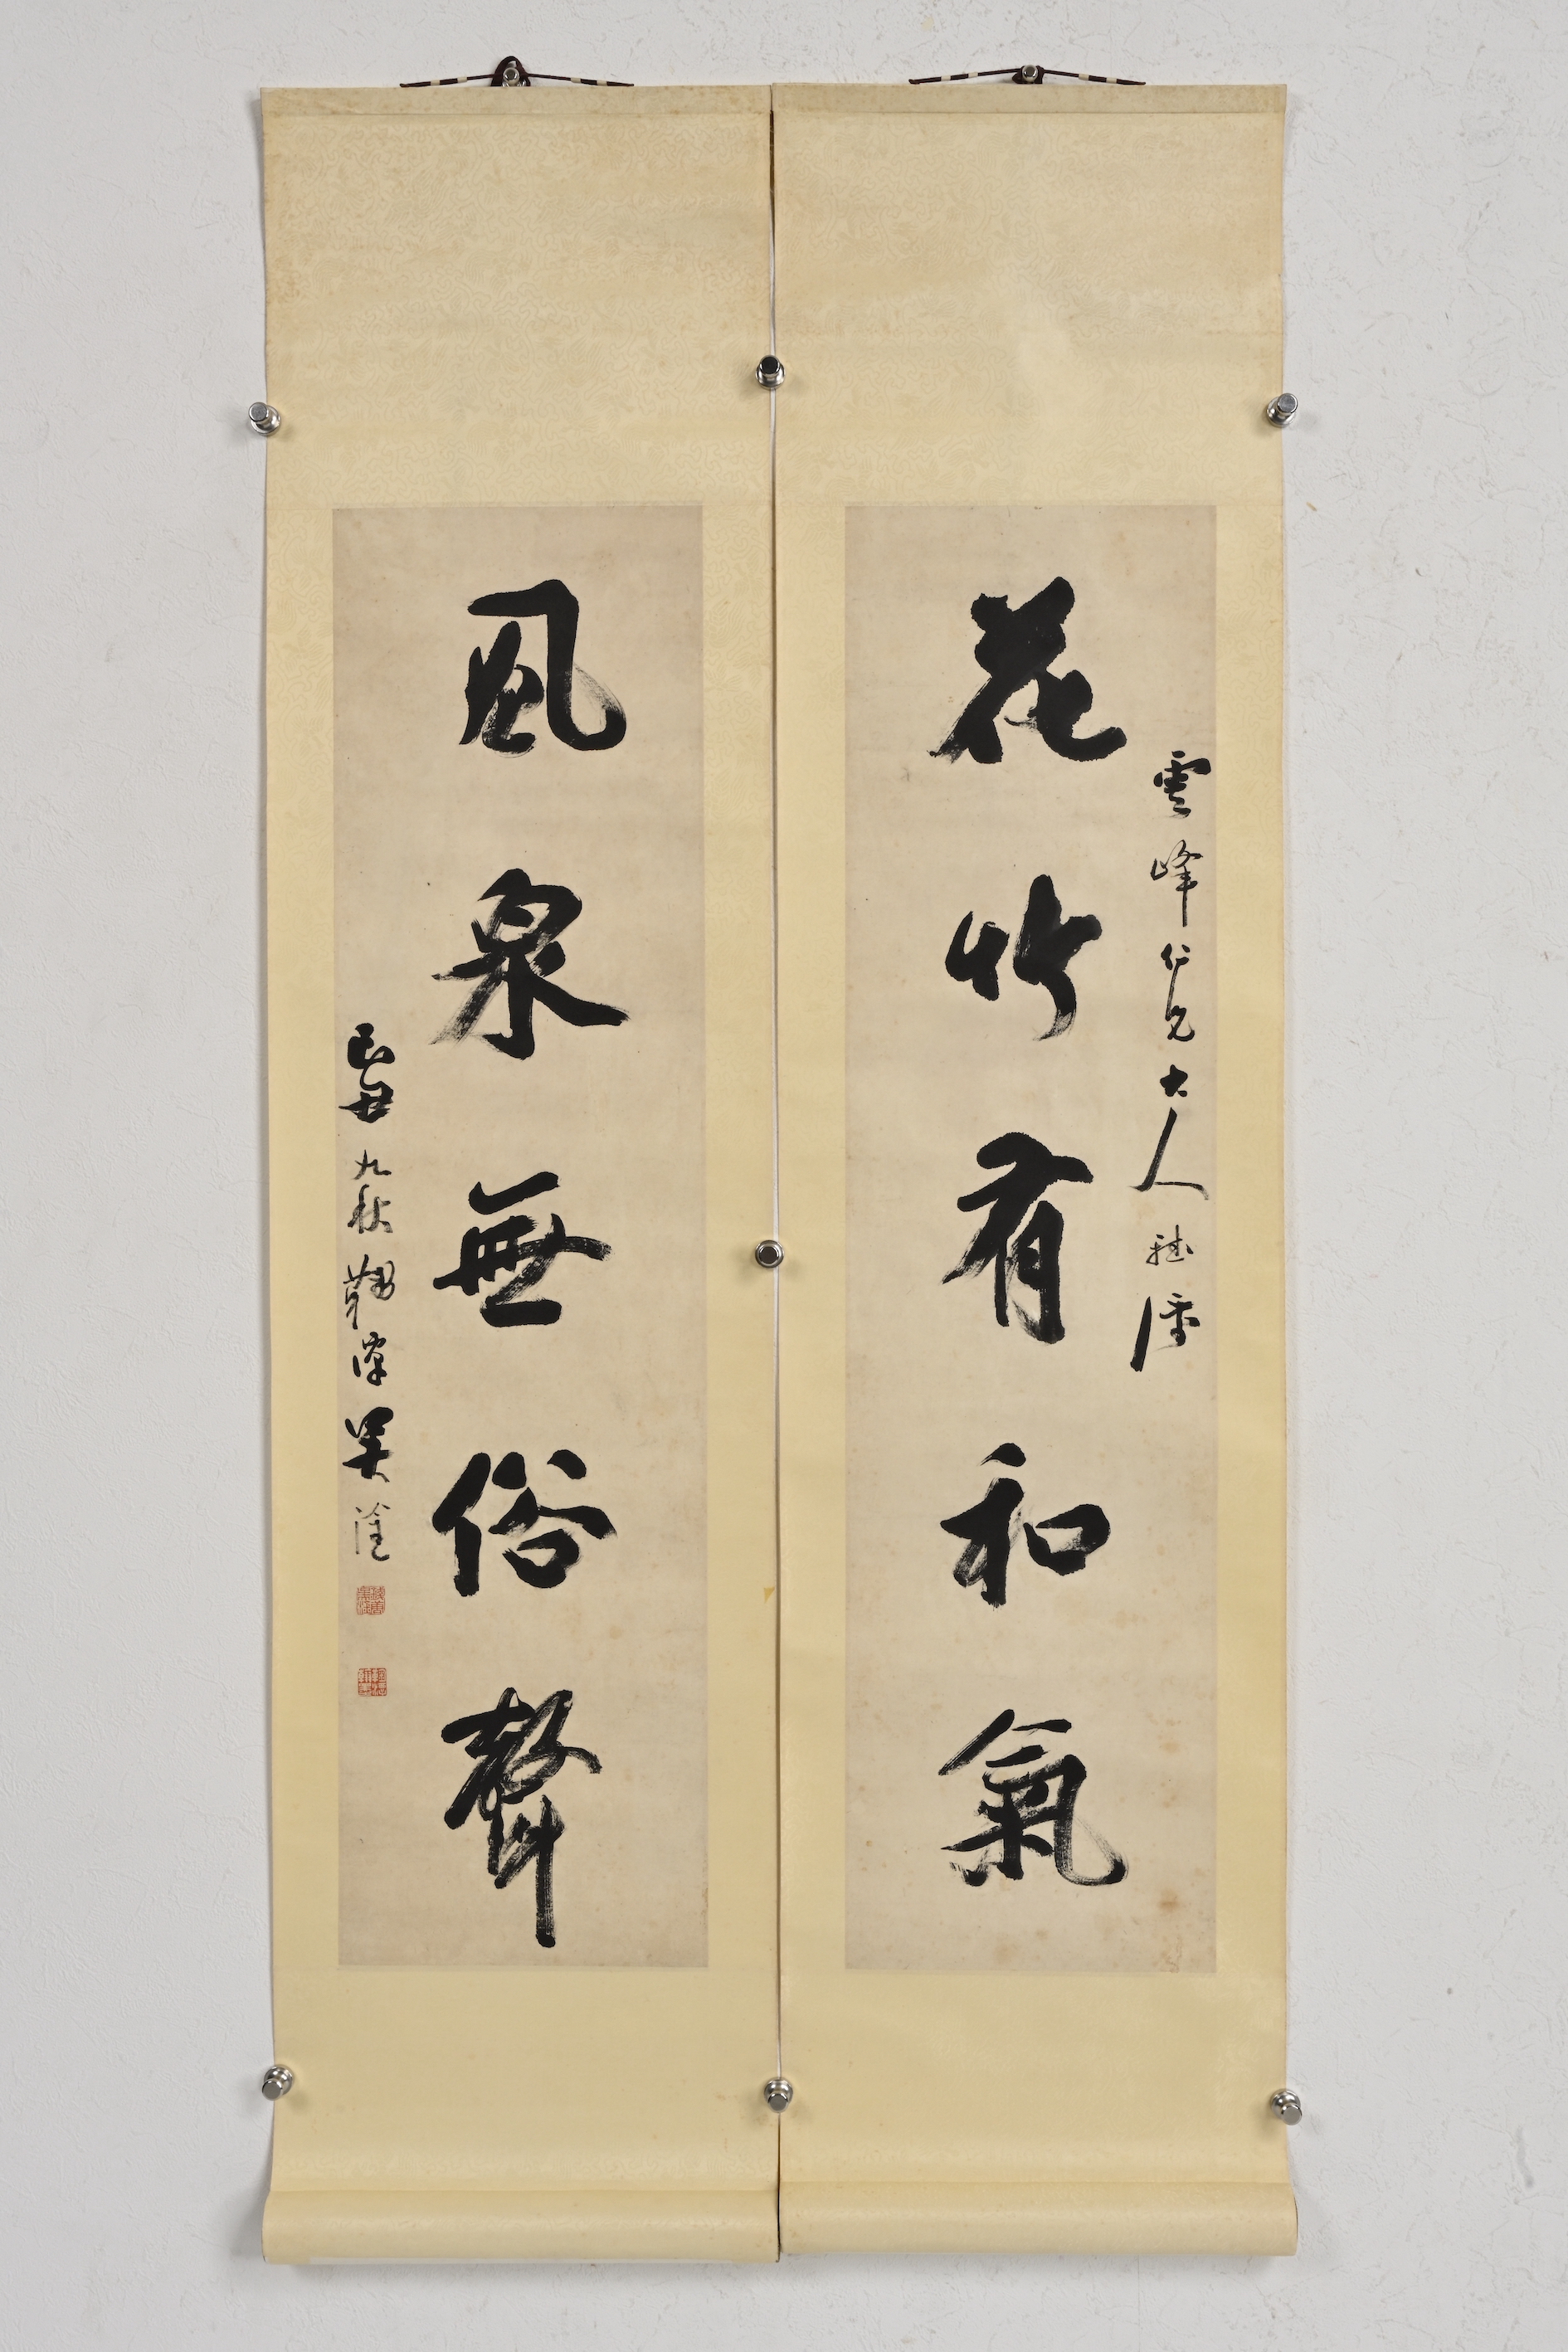 花竹有和氣
雲峰仁兄大人雅屬
風泉無俗聲
丑九秋鞠潭吳淦